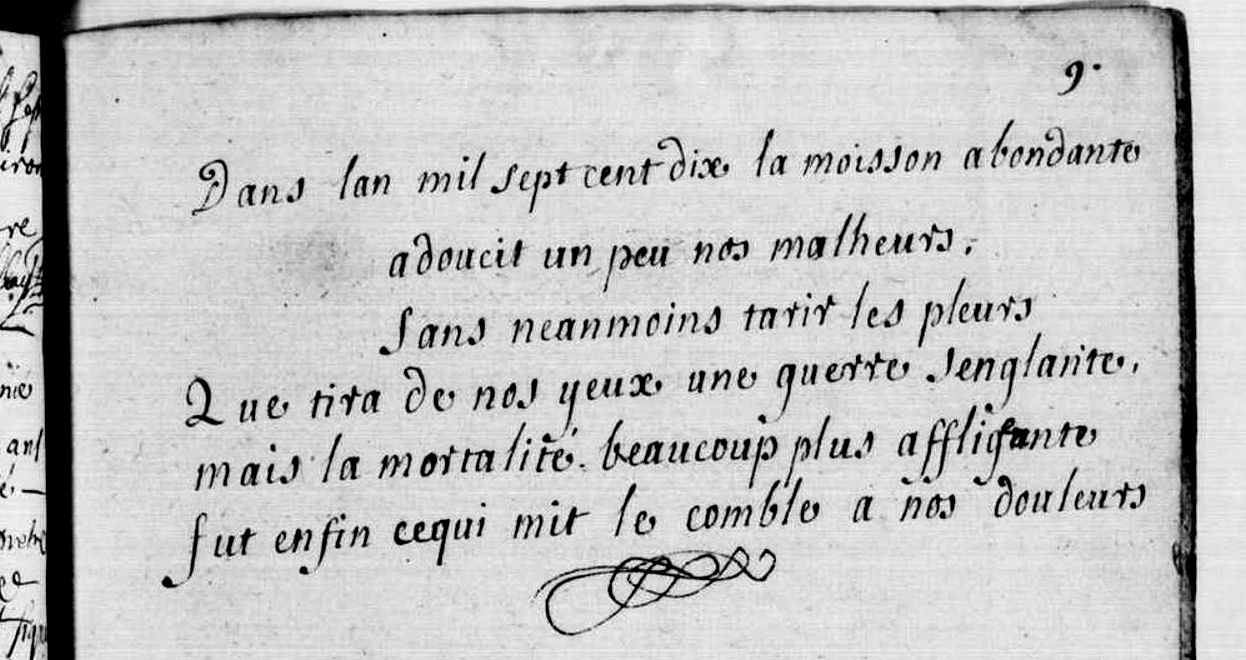 9.
Dans lan mil sept cent dix la moisson abondante
adoucit un peu nos malheurs,
Sans neanmoins tarir les pleurs
Que tira de nos yeux une guerre senglante,
mais la mortalité beaucoup plus affligeante
fut enfin cequi mit le comble a nos douleurs